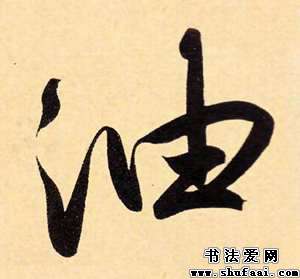 油
书法爱网
www.shufaai.com